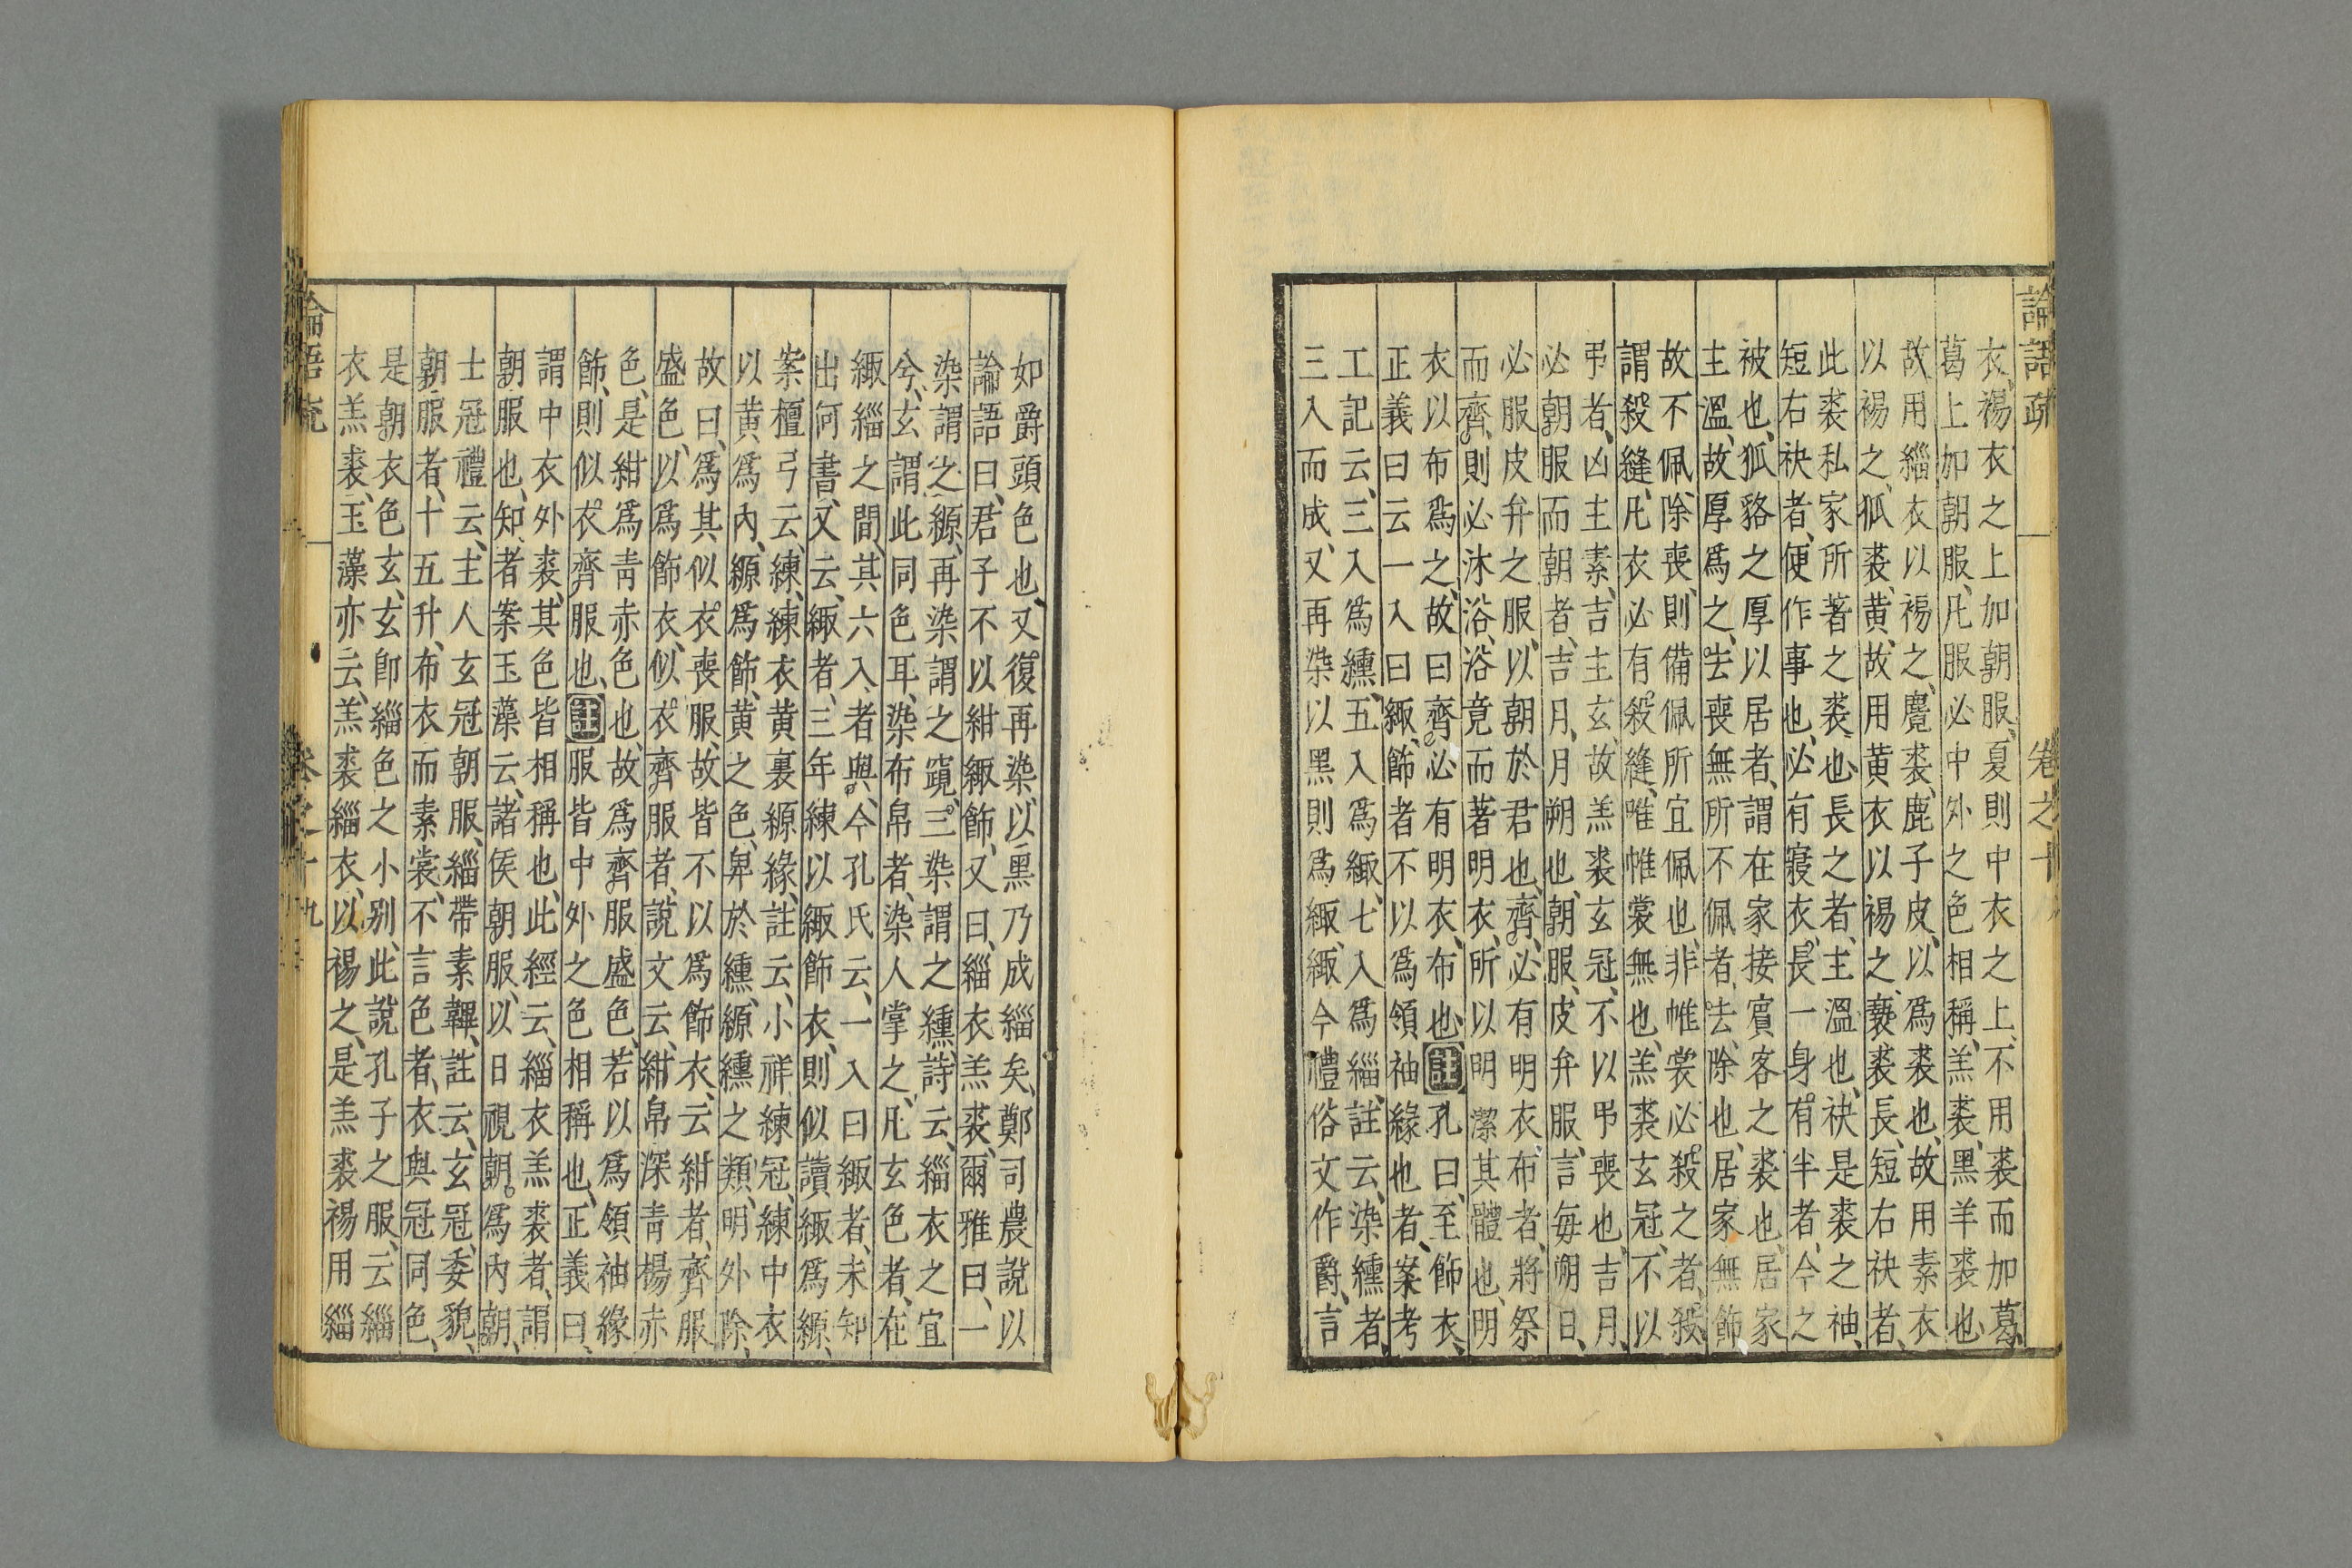 論語疏
卷之十
衣、裼衣之上加朝服、夏則中衣之上、不用裘而加葛、
葛上加朝服、凡服必中外之色相稱、羔裘、黑羊裘也、
故用緇衣以裼之、麑裘、鹿子皮、以爲裘也、故用素衣
以裼之、狐裘、黄、故用黄衣以裼之、褻裘長、短右袂者、
此裘私家所著之裘也、長之者、主溫也、袂是裘之袖、
短右袂者、便作事也、必有寢衣、長一身有半者、今之
被也、狐貉之厚以居者、謂在家接賓客之裘也、居家
主溫、故厚爲之、去喪無所不佩者、去、除也、居家無飾
故不佩、除喪、則備佩所宜佩也、非帷裳必殺之者、殺
謂殺縫、凡衣必有殺縫、唯帷裳無也、羔裘玄冠、不以
弔者、凶主素、吉主玄、故羔裘玄冠、不以弔喪也、吉月、
必朝服而朝者、吉月、月朔也、朝服、皮弁服、言每朔日、
必服皮弁之服、以朝於君也、齊、必有明衣布者、將祭
而齊、則必沐浴、浴竟而著明衣、所以明潔其體也、明
衣以布爲之、故曰齊、必有明衣、布也、註孔曰、至飾衣、
正義曰云一入曰緅、飾者不以爲領袖緣也者、案考
工記云、三入爲纁、五入爲緅、七入爲緇、註云、染纁者、
三入而成、又再染以黑則爲緅、緅今禮俗文作爵、言
如爵頭色也、又復再染、以黑乃成緇矣、鄭司農說以
論語曰、君子不以紺緅飾、又曰、緇衣羔裘、爾雅曰、一
染謂之縓、再染謂之竀、三染謂之纁、詩云、緇衣之宜
今、玄謂此同色耳、染布帛者、染人掌之、凡玄色者、在
緅緇之間、其六入者與、今孔氏云、一入曰緅者、未知
出何書、又云、緅者、三年練以緅飾衣、則似讀緅爲縓、
案檀弓云、練、練衣黄裏縓緣、註云、小祥練冠、練中衣
以黄爲內、縓爲飾、黄之色、卑於纁、縓纁之類、明外除、
故曰、爲其似衣喪服、故皆不以爲飾衣、云紺者、齊服
盛色、以爲飾衣、似衣齊服者、說文云、紺帛深青楊赤
色、是紺爲青赤色也、故爲齊服盛色、若以爲領袖緣
飾、則似衣齊服也、註服皆中外之色相稱也、正義曰、
謂中衣外裘、其色皆相稱也、此經云、緇衣羔裘者、謂
朝服也、知者案玉藻云、諸侯朝服、以日視朝。爲內朝、
士冠禮云、主人玄冠朝服、緇帶素韠、註云、玄冠、委貌、
朝服者、十五升、布衣而素裳、不言色者、衣與冠同色、
是朝衣色玄、玄卽緇色之小別、此說孔子之服、云緇
衣羔裘、玉藻亦云、羔裘緇衣、以裼之、是羔裘裼用緇